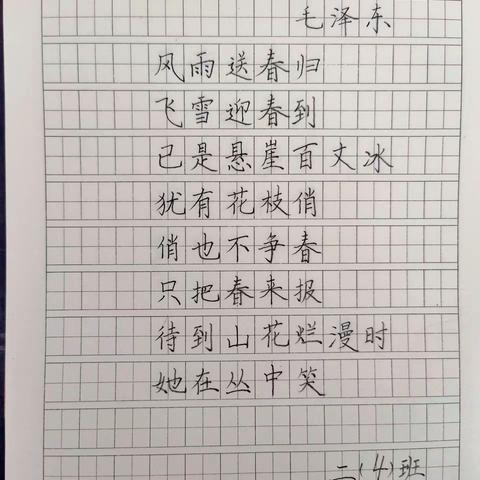 毛泽东
风雨送春归
飞雪迎春到
已是悬崖百丈冰
犹有花枝俏
俏也不争春
只把春来报
待到山花烂漫时
她在丛中笑
二(4)班